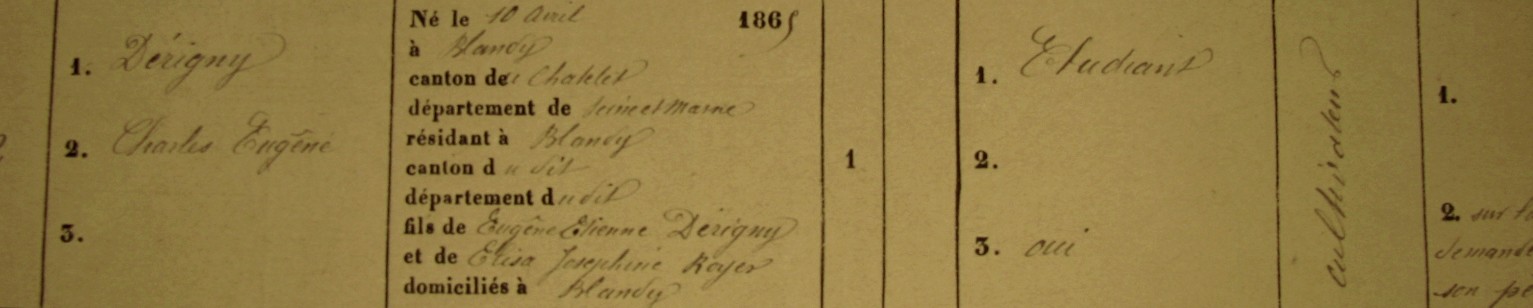 1. Dérigny
2. Charles Eugène
3.
Né le 10 avril 1865
à Blandy
canton du Chatelet
département de Seine et Marne
résidant à Blandy
canton du dit
département dudit
fils de Eugène Etienne Dérigny
et de Elisa Josephine Royer
domiciliés à Blandy
1
1. Etudiant
2.
3. oui
cultivateur
1.
2. sur
demande
son